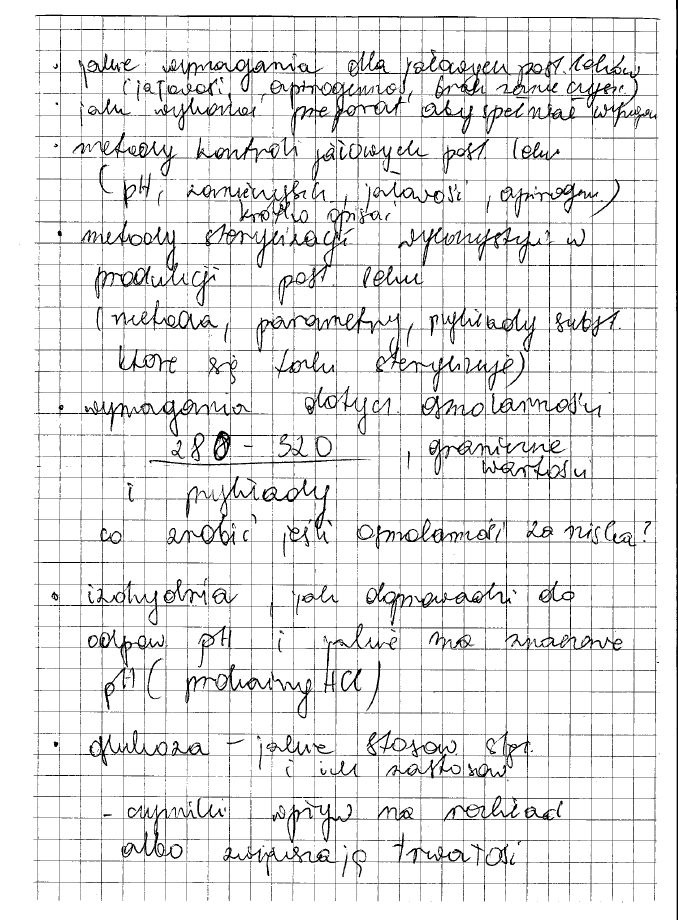 · jakie wymagania dla jałowych post. leków
(jałowość, apirogenność, brak zanieczyszcz)
· jak wykonać preparat aby spełniał wymagan
· metody kontroli jałowych post leku
(pH, zanieczyszcz, jałowość, apirogen)
krótko opisać
· metody sterylizacji wykorzysty. w
produkcji post leku
(metoda, parametry, przykłady subst.
które się tak sterylizuje)
· wymagania dotycz. osmolarności
280 - 320 , graniczne
wartości
i przykłady
co zrobić jeśli osmolarność za niska?
· izohydria, jak doprowadzi do
odpow pH i jakie ma znaczenie
pH (prokainy HCl)
· glukoza – jakie stosow stęż.
i ich zastosow
- czynniki wpływ na rozkład
albo zwiększają trwałość